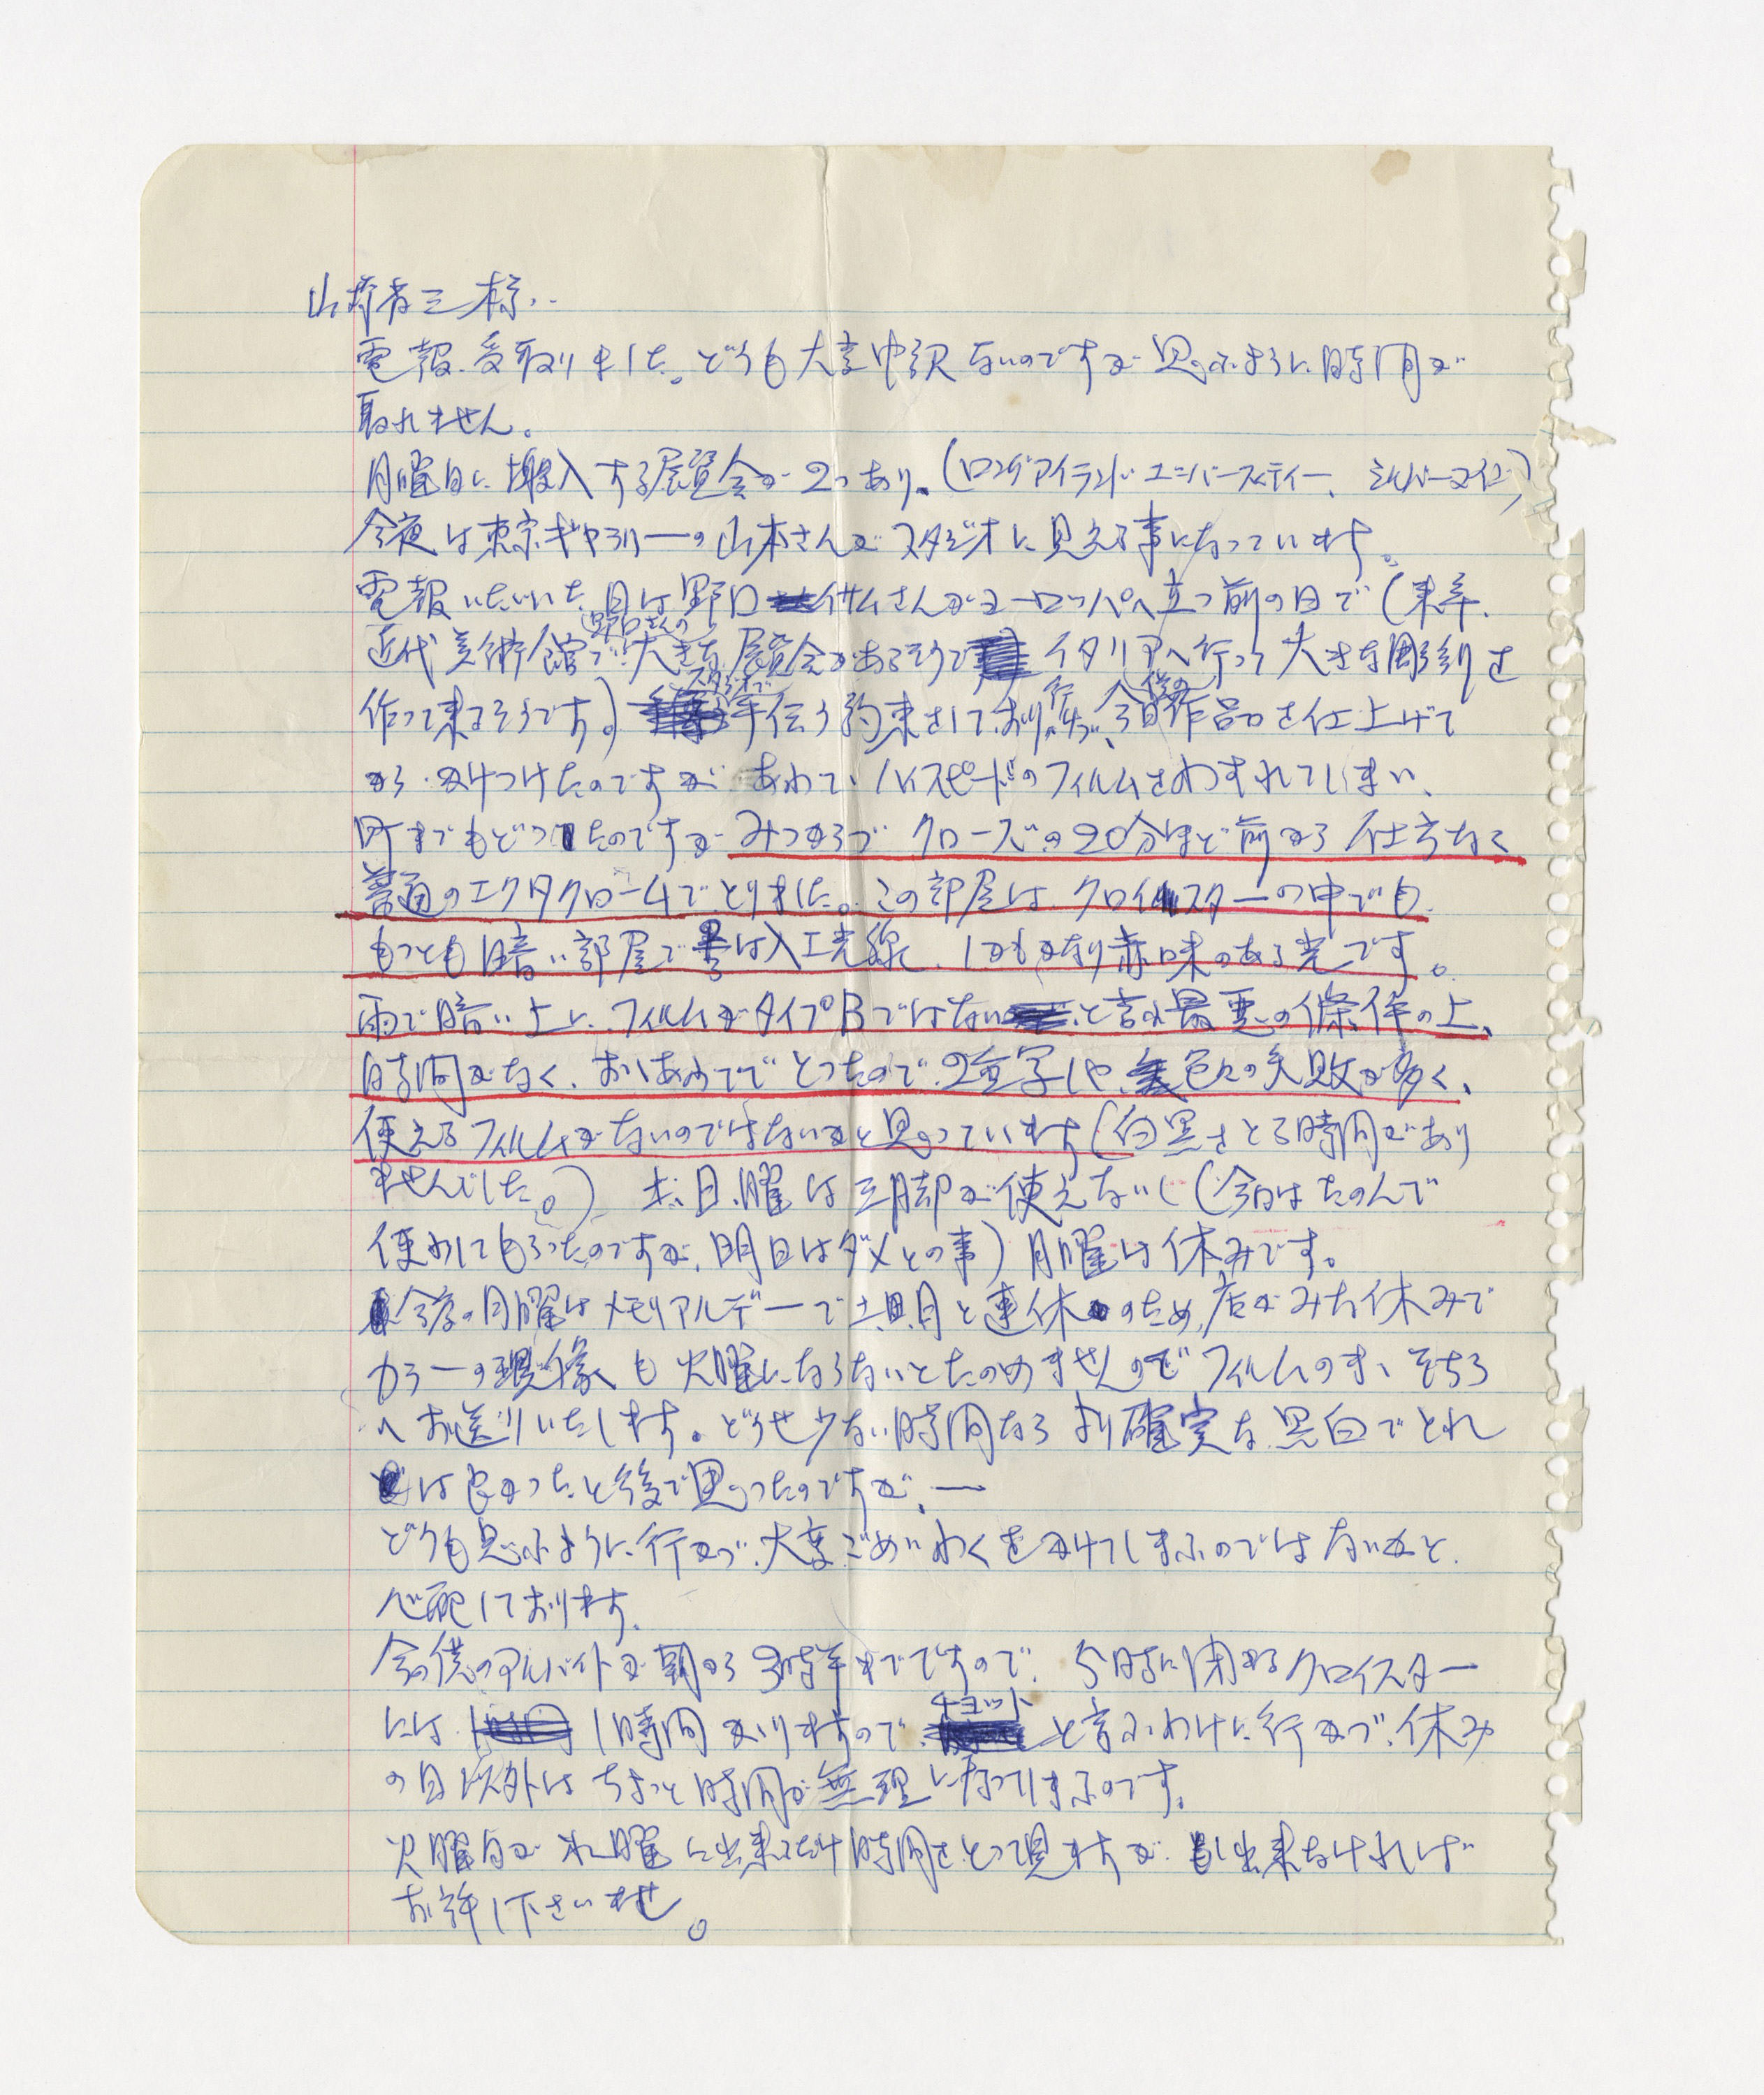 山崎省三様..
電報、受取りました。どうも大変申訳ないのですが思ふように時間が
取れません。
月曜日に搬入する展覧会が2つあり、(ロングアイランドユニバースティー、シルバーマイン)
今夜は東京ギャラリーの山本さんがスタジオに見える事になっています。
電報いたゞいた日は野口イサムさんがヨーロッパへ立つ前の日で(来年、
近代美術館で野口さんの大きな展覧会があるそうでイタリアへ行って大きな彫刻を
作って来るそうです。)スタジオで手伝う約束をしており行けず、今日僕の作品を仕上げて
から、かけつけたのですが、あわてゝハイスピードのフィルムをわすれてしまい、
町までもどったのですがみつからづ クローズの20分ほど前から仕方なく
普通のエクタクロームでとりました。この部屋は、クロイスターの中でも
もっとも暗い部屋で 人工光線、しかもかなり赤味のある光です。
雨で暗い上に、フィルムがタイプBではないと言ふ最悪の條件の上、
時間がなく、おゝあわてでとったので、2重写しや、色々の失敗が多く、
使えるフィルムがないのではないかと思っています(白黒をとる時間があり
ませんでした。) 土、日、曜は三脚が使えないし(今日はたのんで
使わしてもらったのですが、明日はダメとの事)月曜は休みです。
今度の月曜はメモリアルデーで土、日、月と連休のため、店がみな休みで
カラーの現像も火曜にならないとたのめませんのでフィルムのまゝそちら
へお送りいたします。どうせ少ない時間なら より確実な、黒白でとれ
ば良かったと後で思ったのですが、—
どうも思ふように行かづ、大変ごめいわくをかけてしまふのではないかと、
心配しております。
今の僕のアルバイトが朝から3時半までですので、5時に閉まるクロイスター
には 1時間かゝりますので、チョットと言ふわけに行かづ、休み
の日以外はちょっと時間が無理になってしまふのです。
火曜日か水曜に出来るだけ時間をとって見ますが、もし出来なければ
お許し下さいませ。